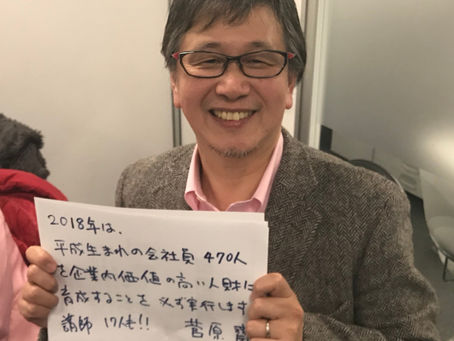 2018年は、
平成生まれの会社員 470人
を企業内価値の高い人財に
育成することを必ず実行します
講師 17人も!! 菅原